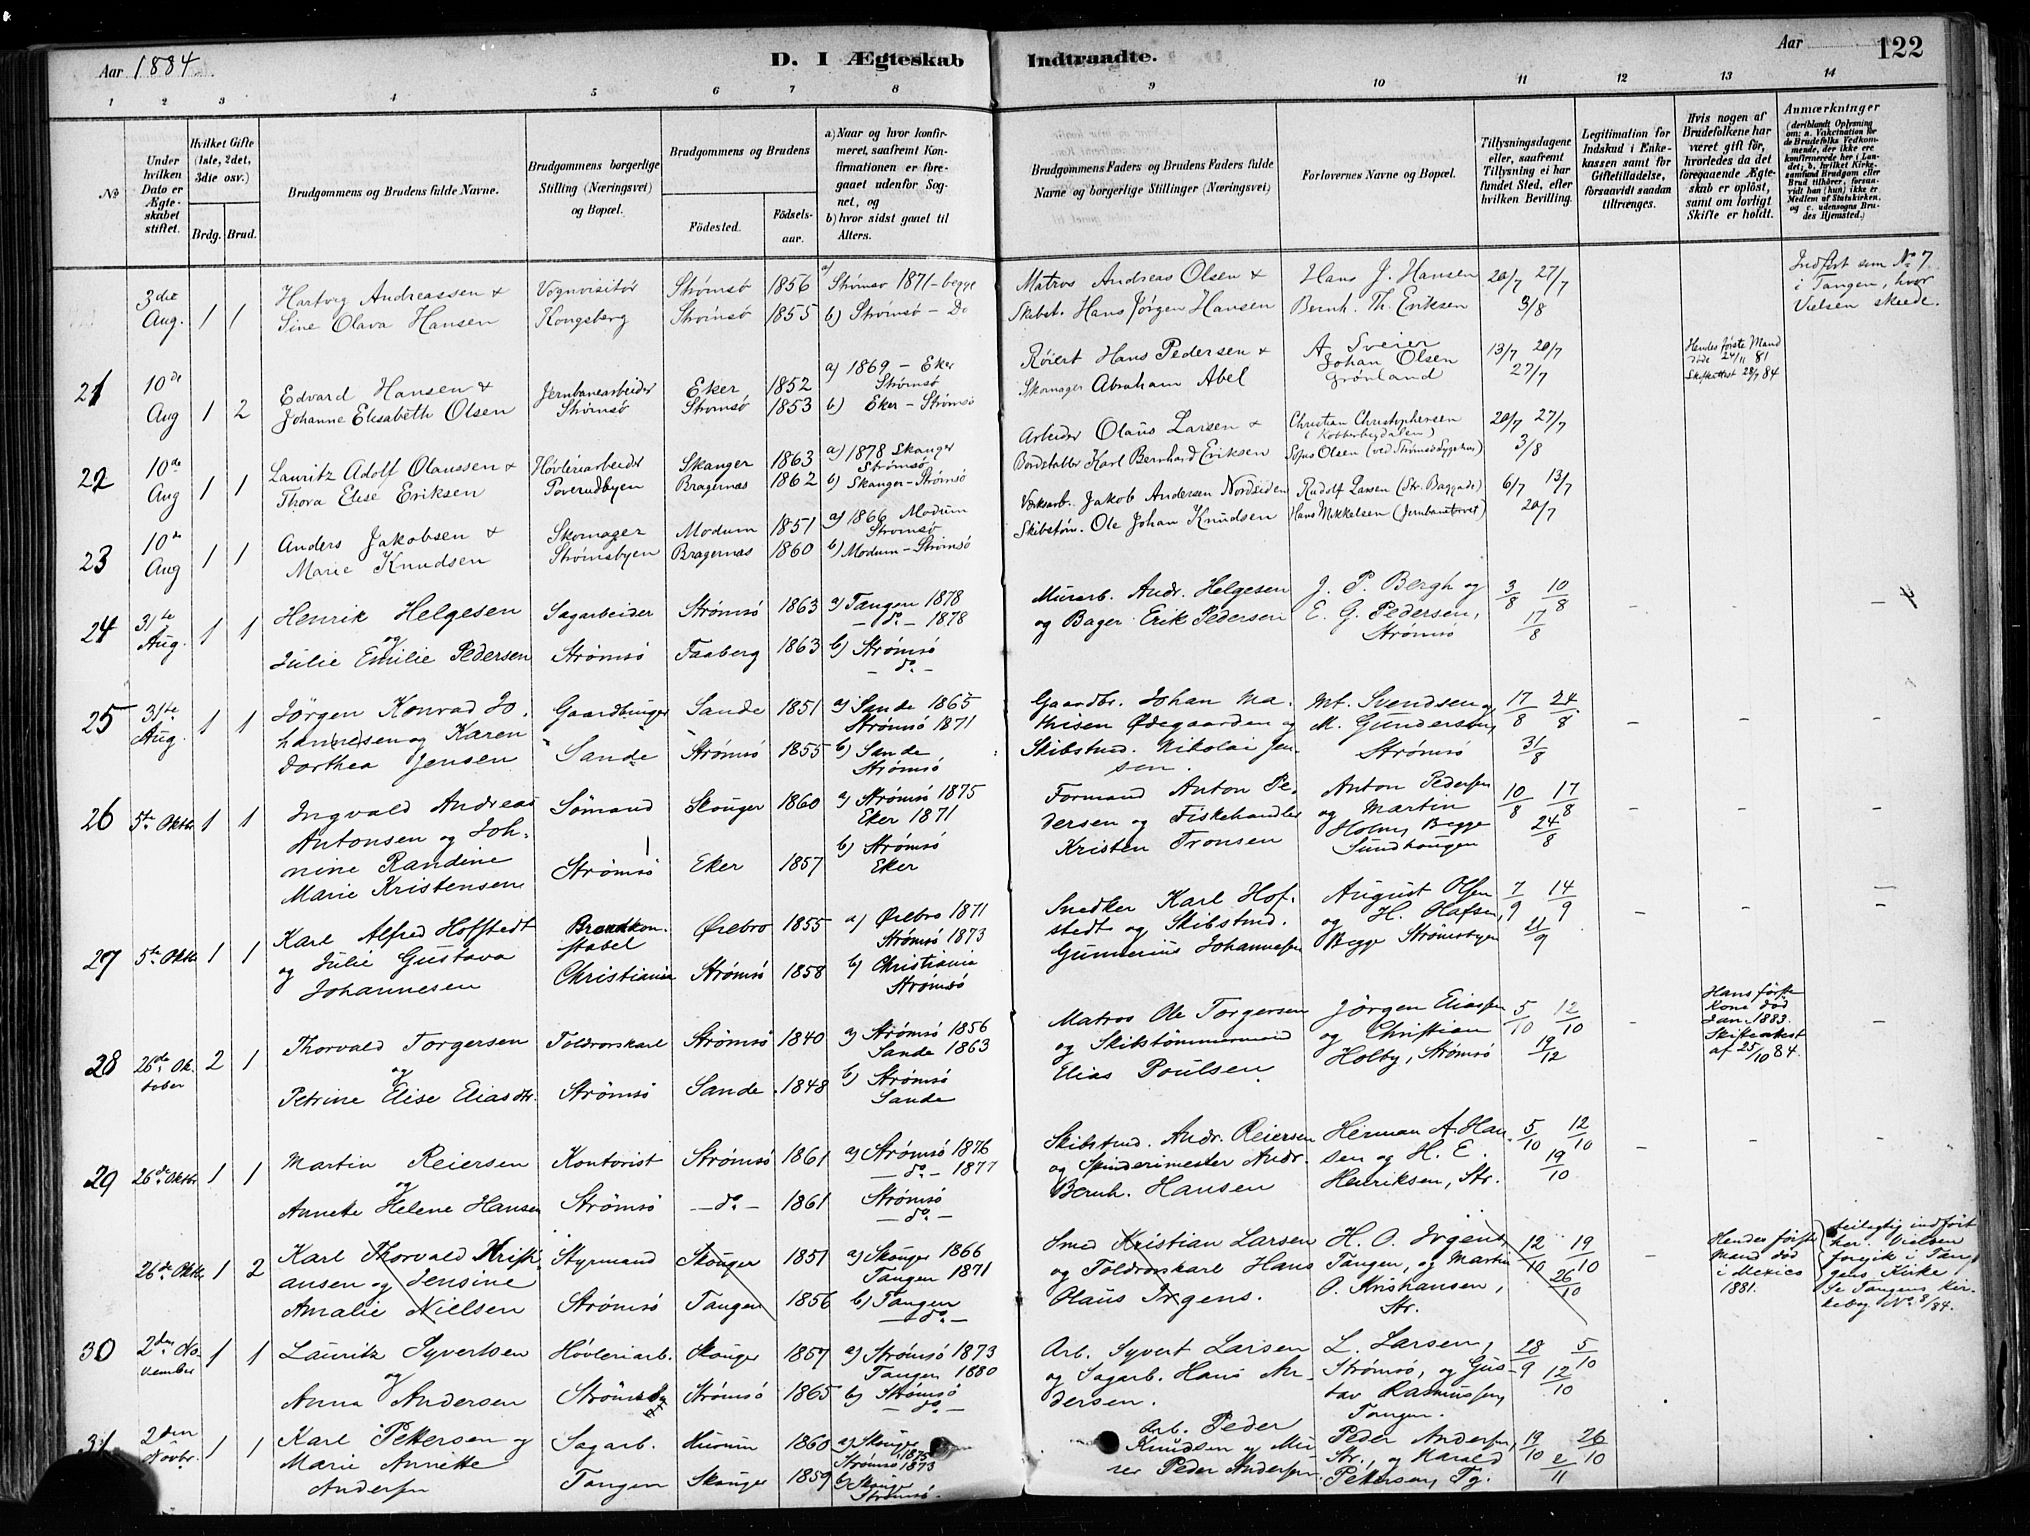 Aar 1884
D. I Ægteskab Indtraadte.
Aar
122
1 2 3 4 5 6 7 8 9 10 11 12 13 14
No
Under hvilken Dato er Ægteskabet stiftet.
Hvilket Gifte (1ste, 2det, 3die osv.)
Brdg. Brud.
Brudgommens og Brudens fulde Navne.
Brudgommens borgerlige Stilling (Næringsvei) og Bopæl.
Brudgommens og Brudens
Fødested.
Fødselsaar.
a) Naar og hvor konfirmeret, saafremt Konfirmationen er foregaaet udenfor Sognet, og
b) hvor sidst gaaet til Alters.
Brudgommens Faders og Brudens Faders fulde Navne og borgerlige Stillinger (Næringsvei)
Forlovernes Navne og Bopæl.
Tillysningsdagene eller, saafremt Tillysning ei har fundet Sted, efter hvilken Bevilling.
Legitimation for Indskud i Enkekassen samt for Giftetilladelse, forsaavidt saadan tiltrænges.
Hvis nogen af Brudefolkene har været gift før, hvorledes da det foregaaende Ægteskab er opløst, samt om lovligt Skifte er holdt.
Anmærkninger (deriblandt Oplysning om: a. Vakcination for de Brudefolks Vedkommende, der ikke ere konfirmerede her i Landet; b. hvilket Kirkesamfund Brudgom eller Brud tilhører, forsaavidt han (hun) ikke er Medlem af Statskirken, og c. udensogns Brudes Hjemsted.)
3die Aug. 1 1 Hartvig Andreassen & Sine Olava Hansen Vognvisitør Kongsberg Strømsø Strømsø 1856 1855 a) Strømsø 1871 - begge b) Strømsø - Do Matros Andreas Olsen & Skibst. Hans Jørgen Hansen Hans J. Hansen Bernh. Th. Eriksen 20/7 27/7 3/8 Indført som No 7. i Tangen, hvor Vielsen skeede.
21 10de Aug 1 2 Edvard Hansen & Johanne Elisabeth Olsen Jernbanearbeider Strømsø Eker Strømsø 1852 1853 a) 1869 - Eker Strømsø b) Eker - Strømsø Røiert Hans Pedersen & Skomager Abraham Abel A. Sveier Johan Olsen Grønland 13/7 20/7 27/7 Hendes første Mand døde 24/11 81 Skifteattest 28/7 84
22 10de Aug 1 1 Lauritz Adolf Olaussen & Thora Elise Eriksen Høvleriarbeider Poverudbyen Skauger Bragernæs 1863 1862 a) 1878 Skauger Strømsø b) Skauger - Strømsø Arbeider Olaus Larsen & Bordstabler Karl Bernhard Eriksen Christian Christophersen (Kobberbergdalen) Sofus Olsen (ved Strømsø Sygehus) 20/7 27/7 3/8
23 10de Aug 1 1 Anders Jakobsen & Marie Knudsen Skomager Strømsbyen Modum Bragernæs 1851 1860 a) 1866 Modum Strømsø b) Modum - Strømsø Værksarb. Jakob Andersen Nordsiden Skibstøm. Ole Johan Knudsen Rudolf Larsen (Str. Baggade) Hans Mikkelsen (Jernbanetorvet) 6/7 13/7 20/7
24 31te Aug. 1 1 Henrik Helgesen og Julie Emilie Pedersen Sagarbeider Strømsø Strømsø Faaberg 1863 1863 a) Tangen 1878 - do - 1878 b) Strømsø - do - Murarb. Andr. Helgesen og Bager Erik Pedersen J. P. Bergh og E. G. Pedersen, Strømsø 3/8 10/8 17/8
25 31te Aug. 1 1 Jørgen Konrad Johannesen og Karen Dorthea Jensen Gaardbruger Sande Sande Strømsø 1851 1855 a) Sande 1865 Strømsø 1871 b) Sande Strømsø Gaardbr. Johan Mathisen Ødegaarden og Skibstmd. Nikolai Jensen. Mt. Svendsen og M. Gundersen, Strømsø 17/8 24/8 31/8
26 5te Oktbr. 1 1 Ingvald Andreas Antonsen og Johnine Randine Marie Kristensen Sømand Strømsø Skouger Eker 1860 1857 a) Strømsø 1875 Eker 1871 b) Strømsø Eker Formand Anton Pedersen og Fiskehandler Kristen Tronsen Anton Pedersen og Martin Holm, Begge Sundhaugen 10/8 17/8 24/8
27 5te Oktbr 1 1 Karl Alfred Hofstedt og Julie Gustava Johannesen Brandkonstabel Christiania Ørebro Strømsø 1855 1858 a) Ørebro 1871 Strømsø 1873 b) Christiania Strømsø Snedker Karl Hofstedt og Skibstmd. Gunnerius Johannessen August Olsen og H. Olafsen, Begge Strømsbyen 7/9 14/9 21/9
28 26de Oktober 2 1 Thorvald Torgersen og Petrine Elise Eliasdtr. Toldrorskarl Strømsø Strømsø Sande 1840 1848 a) Strømsø 1856 Sande 1863 b) Strømsø Sande Matros Ole Torgersen og Skibstømmermand Elias Poulsen Jørgen Eliassen og Christian Holby, Strømsø 5/10 12/10 19/12 Hans første Kone død Jan. 1883. Skifteattest af 25/10 84.
29 26de Oktbr. 1 1 Martin Reiersen og Annette Helene Hansen Kontorist Strømsø Strømsø - do - 1861 1861 a) Strømsø 1876 - do - 1877 Strømsø - do - Skibstmd. Andr. Reiersen og Spinderimester Andr. Bernh. Hansen Herman A. Hansen og H. E. Henriksen, Str. 5/10 12/10 19/10
26de Oktbr. 1 2 Karl Thorvald Kristiansen og Jensine Amalie Nielsen Styrmand Strømsø Skouger Tangen 1851 1856 a) Skouger 1866 Tangen 1871 b) Tangen - do - Smed Kristian Larsen og Toldrorskarl Hans Olaus Irgens. H. O. Irgens Tangen, og Martin O. Kristiansen, Str. 12/10 19/10 26/10 Hendes første Mand død i Mexico 1881. feilagtig indført her. Vielsen foregik i Tangens Kirke Se Tangens Kirkebog No. 8/84.
30 2den November 1 1 Lauritz Syvertsen og Anna Andersen Høvleriarb. Strømsby Skouger Strømsø 1857 1865 a) Strømsø 1873 Tangen 1880 b) Strømsø - do - Arb. Syvert Larsen og Sagarb. Hans Andersen. L. Larsen, Strømsø, og Gustav Rasmussen, Tangen. 28/9 5/10 12/10
31 2den Novbr. 1 1 Karl Pettersen og Marie Annette Andersen Sagarb. Tangen Hurum Skouger 1860 1859 a) Skouger 1875 Strømsø 1873 b) Skouger Strømsø. Arb. Peder Knudsen og Murer Peder Andersen Peder Andersen, Str., og Harald Pettersen, Tg. 19/10 26/10 2/11